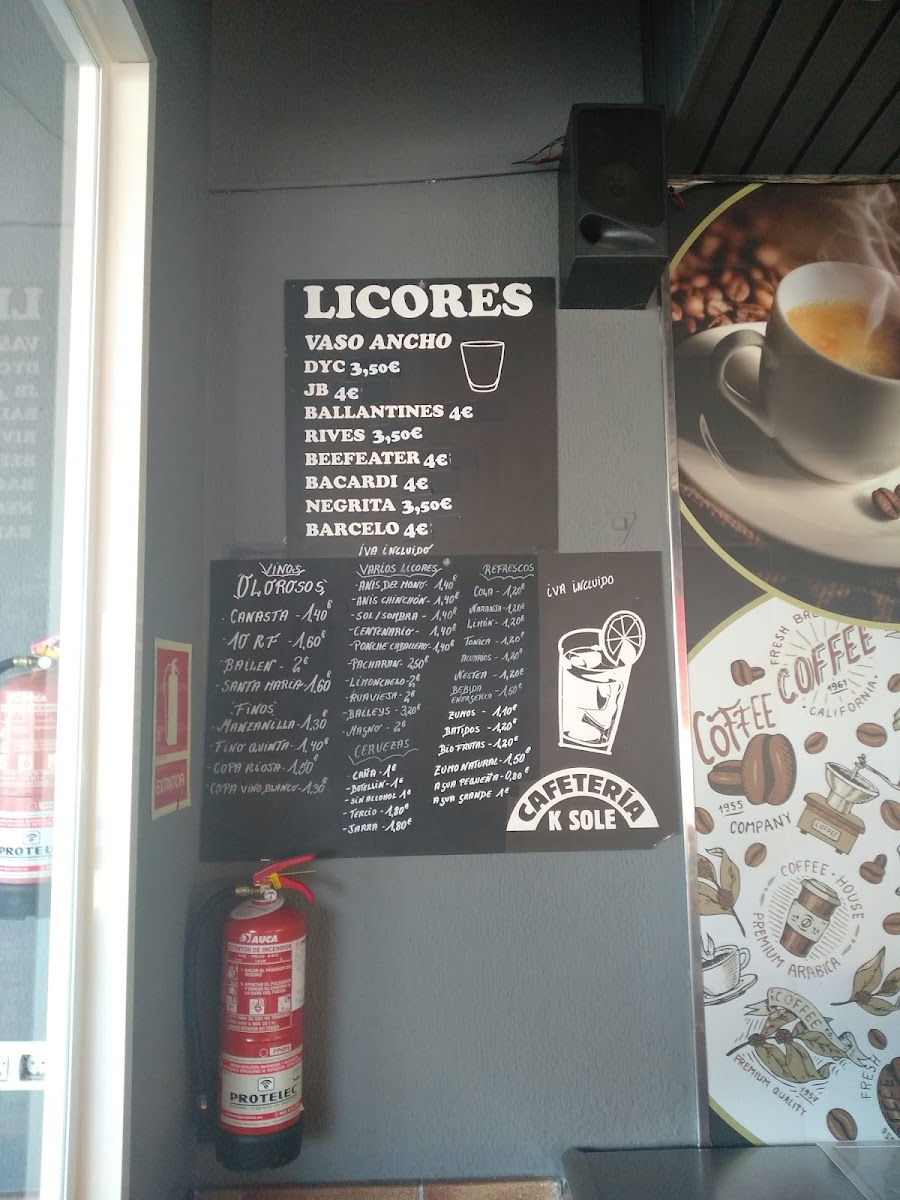 LICORES
VASO ANCHO
DYC 3,50€
JB 4€
BALLANTINES 4€
RIVES 3,50€
BEEFEATER 4€
BACARDI 4€
NEGRITA 3,50€
BARCELO 4€
IVA INCLUIDO
VINOS
OLOROSOS
- CANASTA - 1,40€
- 10 RF - 1,60€
- BAILEN - 2€
- SANTA MARIA - 1,60
FINOS
- MANZANILLA - 1,30
- FINO QUINTA - 1,40€
- COPA RIOJA - 1,50€
- COPA VINO BLANCO - 1,30€
VARIOS LICORES
- ANIS DEL MONO - 1,40€
- ANIS CHINCHÓN - 1,40€
- SOL/SOMBRA - 1,40€
- CENTENARIO - 1,40€
- PONCHE CABALLERO - 1,40€
- PACHARAN - 2,50€
- LIMONCHELO - 2€
- RUAVIEJA - 2€
- BAILEYS - 3,20€
- MAGNO - 2€
CERVEZAS
- CAÑA - 1€
- BOTELLIN - 1€
- SIN ALCOHOL 1€
- TERCIO - 1,80€
- JARRA - 1,80€
REFRESCOS
COLA - 1,20€
NARANJA - 1,20€
LIMÓN - 1,20€
TONICA - 1,20€
ACUARIOS - 1,20€
NESTEA - 1,20€
BEBIDA
ENERGETICA - 1,50€
ZUMOS - 1,10€
BATIDOS - 1,20€
BIOFRUTAS - 1,20€
ZUMO NATURAL - 1,50€
AGUA PEQUEÑA - 0,80€
AGUA GRANDE 1€
IVA INCLUIDO
CAFETERÍA
K SOLE
EXTINTOR
AUCA
EXTINTOR DE INCENDIOS
PROTELEC
FRESH
COFFEE
1961
CALIFORNIA
COFFEE
1955
COMPANY
COFFEE
COFFEE · HOUSE
PREMIUM ARABICA
COFFEE
PREMIUM QUALITY
1957
FRESH